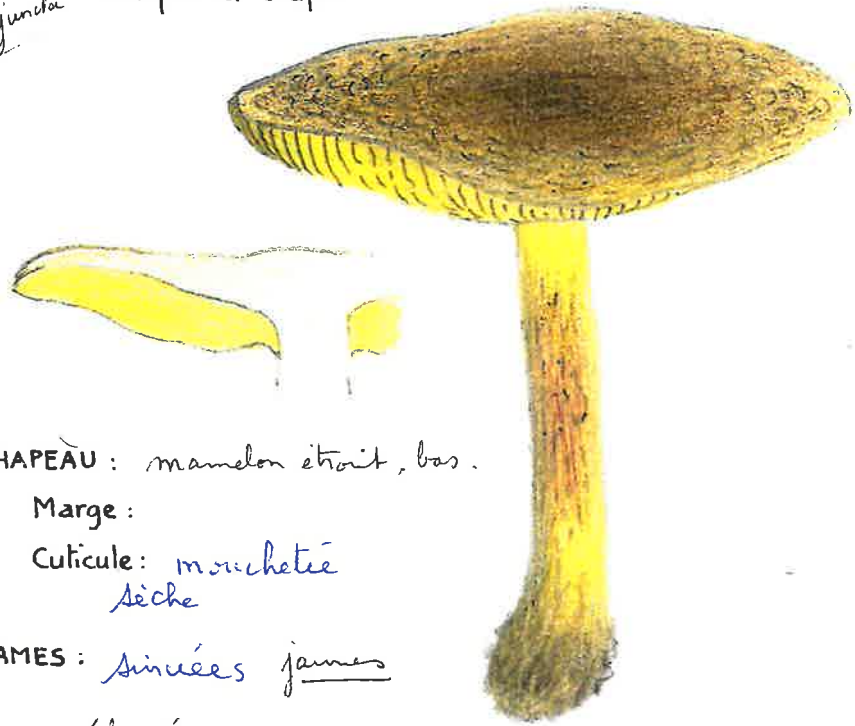 juncta
HAPEAU : mamelon étroit, bas.
Marge :
Cuticule : mouchetée
sèche
AMES : sinuées jaunes